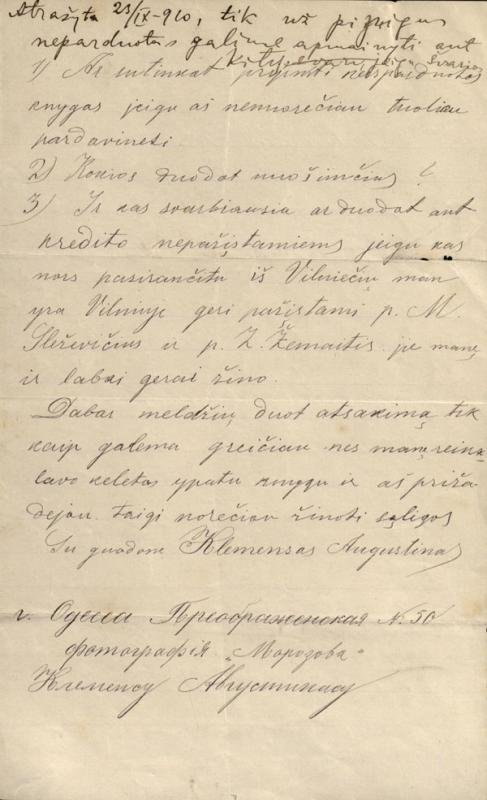 Atrašyta 23/IX-910, tik už pinigus
neparduotas galima apmainyti ant
kitų svarių, jeigu švarios
1) Ar sutinkat pryimti neparduotas
knygas jeigu aš nenorečiau tuoliau
pardavineti
2) Kokius duodat nuošimčius ?
3) Ir kas svarbiausia ar duodat ant
kredito nepažįstamiems jeigu kas
nors pasirančitu iš Vilniečių man
yra Vilniuje geri pažįstami p. M.
Sleževičius ir p. Z. Žemaitis jie manę
ir labai gerai žino.
Dabar meldžių duot atsakimą tik
kaip galema greičiau nes manę reika
lavo keletas ypatu knygu ir aš priža
dejau taigi norečiau žinoti sąligos
Su guodom Klemensas Augustinas
г. Одесса Преображенская № 50
фотографія „Морозова"
Клеменсу Августинасу